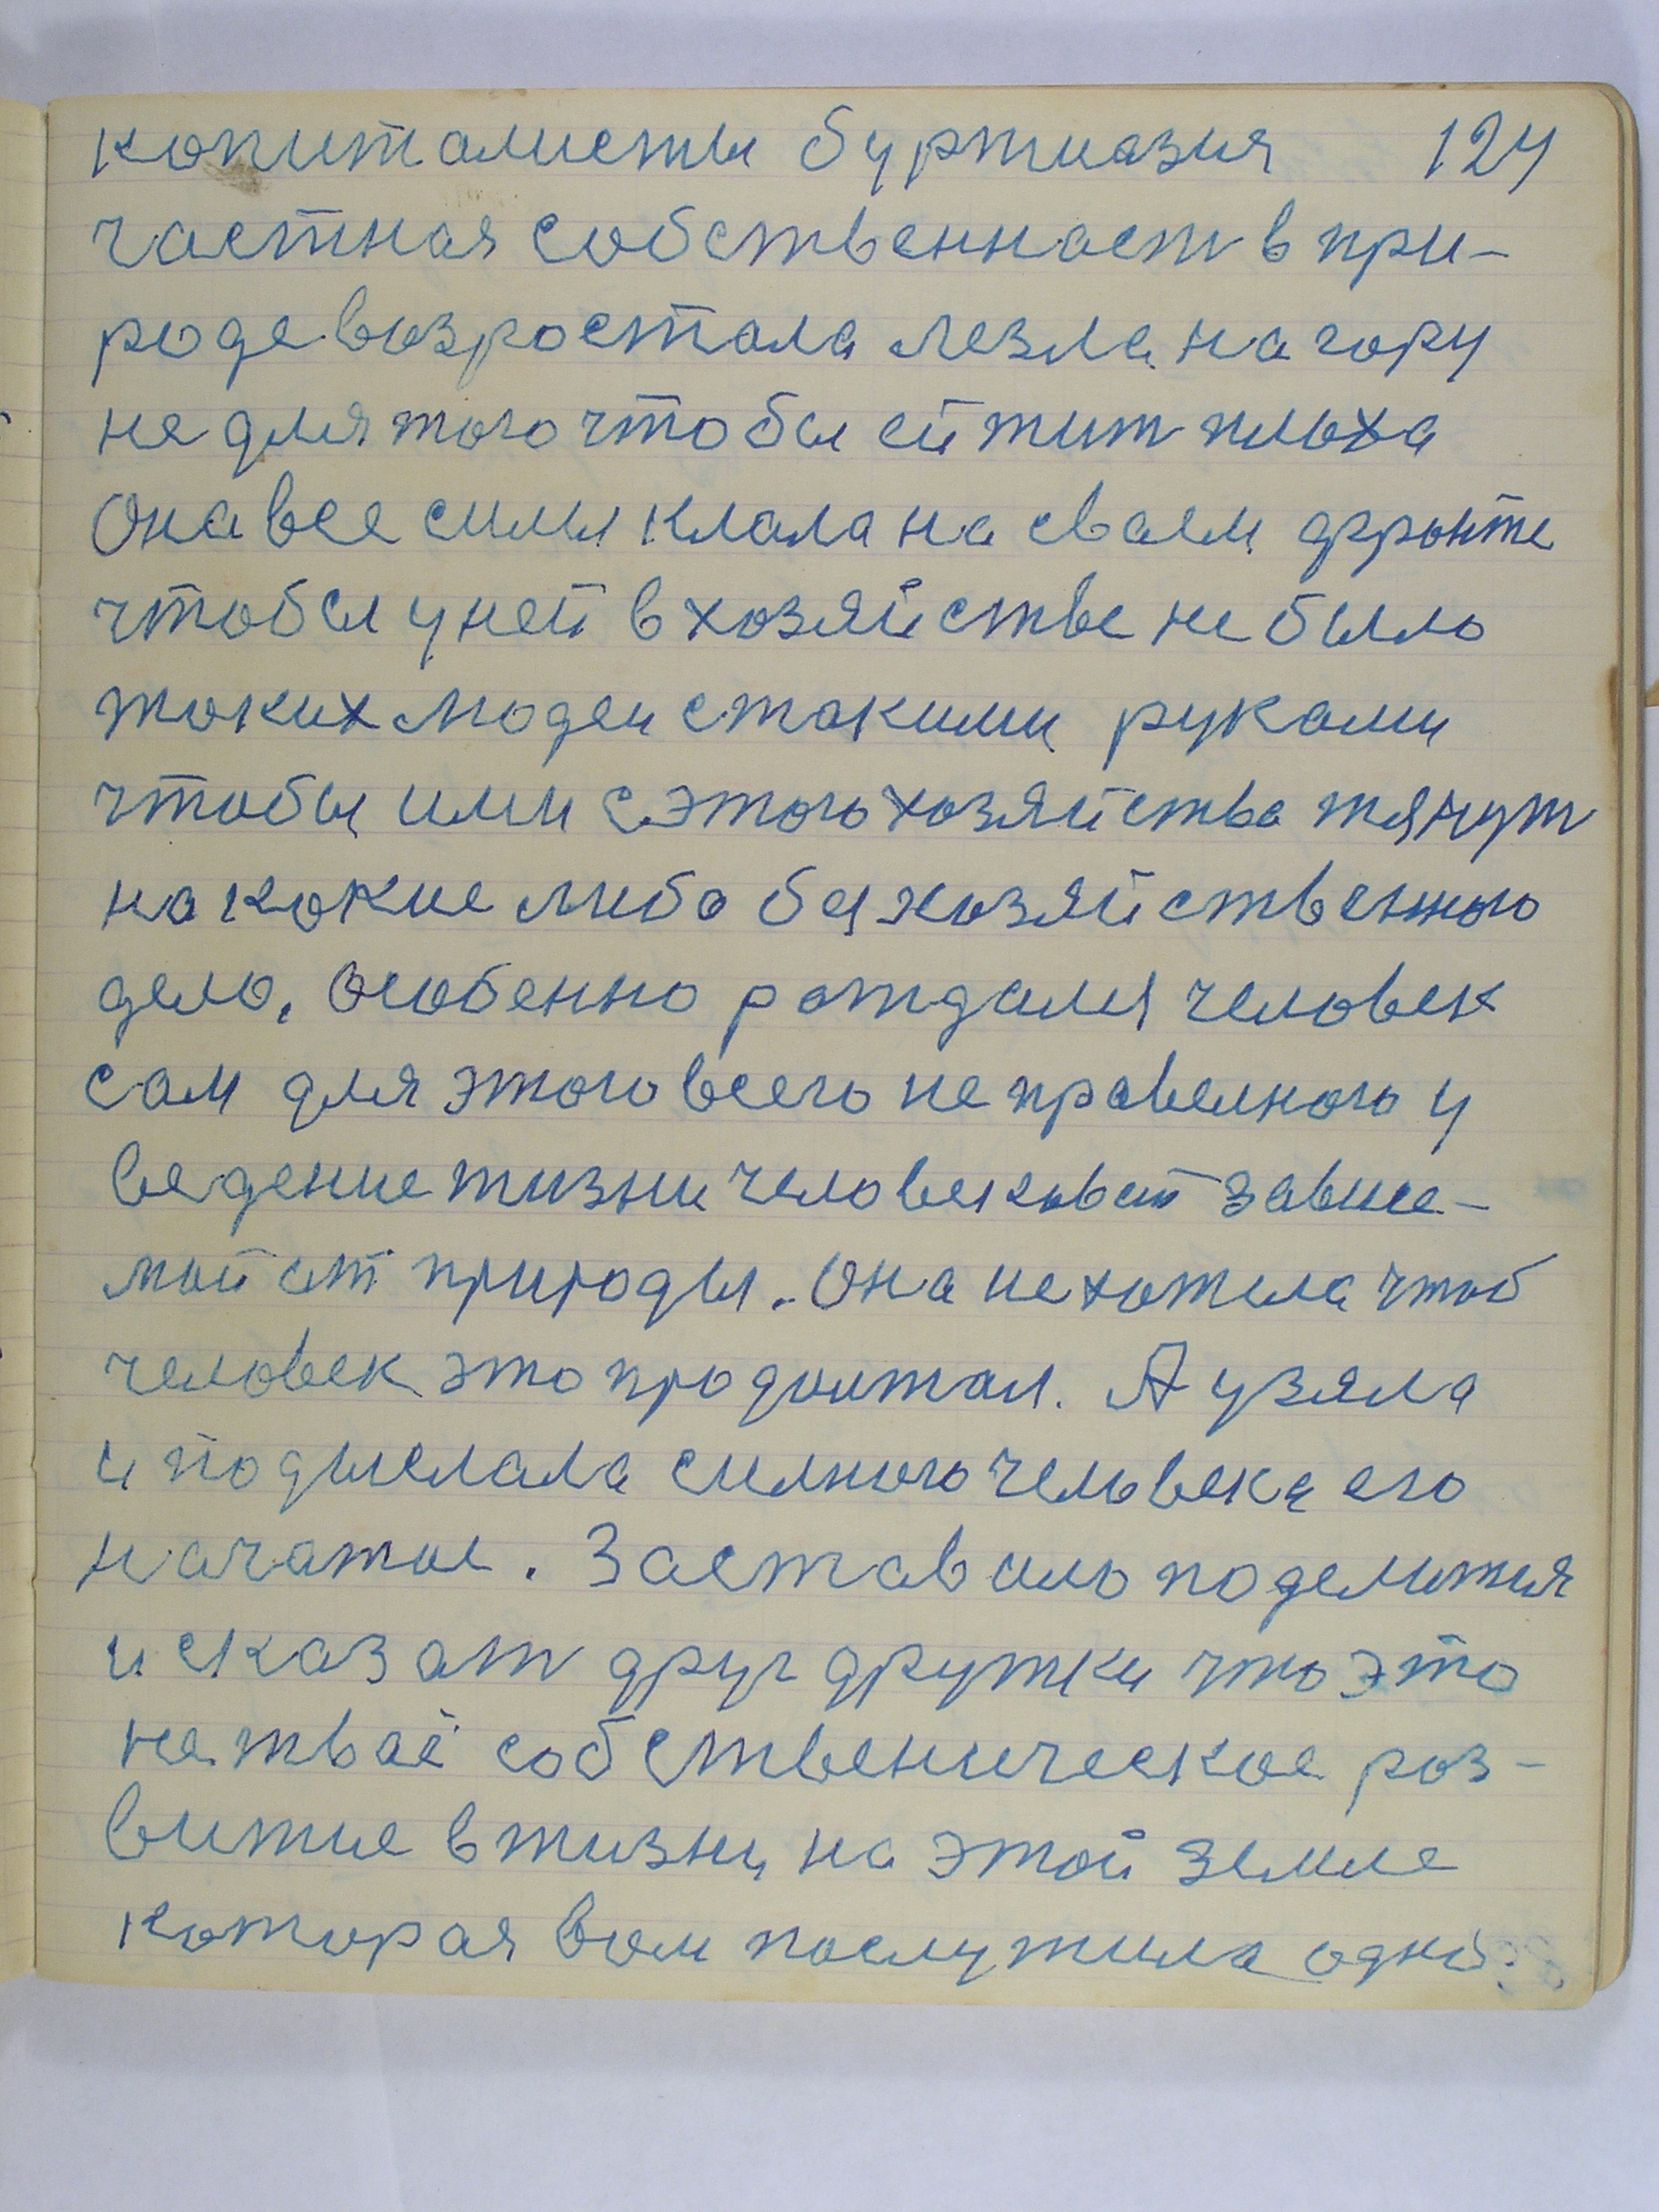 копиталисты буржуазия 124
частная собственаст в при-
роде возростала лезла на гору
не для того чтобы ей жит плоха
Она все силы клала на сваем фронте
чтобы у ней в хозяйстве не было
токих людей с токими руками
чтобы ими с этого хозяйства тянут
на кокие либо безхозяйственного
дело. Особенно рождался человек
сам для этого всего неправелного у
ведение жизни человековай завися-
май ат природы. Она не хотела чтоб
человек это продолжал. А узяла
и подыслала силного человека его
начатие. Заставило поделится
и сказат друг дружки что это
не тваё собственическое роз-
витие в жизни на этой земле
которая вам послужила одной